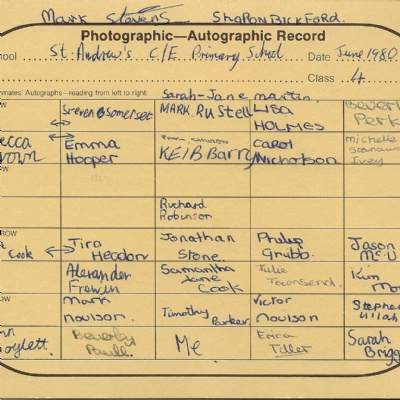 Mark Stevens Sharon Bickford.
Photographic—Autographic Record
hool St Andrew's C/E Primary School Date June 1980
Class 4
mates' Autographs—reading from left to right: Sarah-Jane martin.
OW Steven Somerset MARK RUStell LISA HOLMES Beverl Perk
ecca rown Emma Hooper KEIB BARRY CAROL Nicholson michelle Ivey
Richard Robinson
ROW Cook Tira Headon Jonathan Stone. Philip Grubb. Jason McD
Alexander Frewin Samantha Jane Cook Julie Townsend. Kim Mo
OW Mark Moulson. Timothy Parker. Victor Moulson Stephen Ullah
nn oylett. Beverley Paull. Me Erica Tiller Sarah Brigg